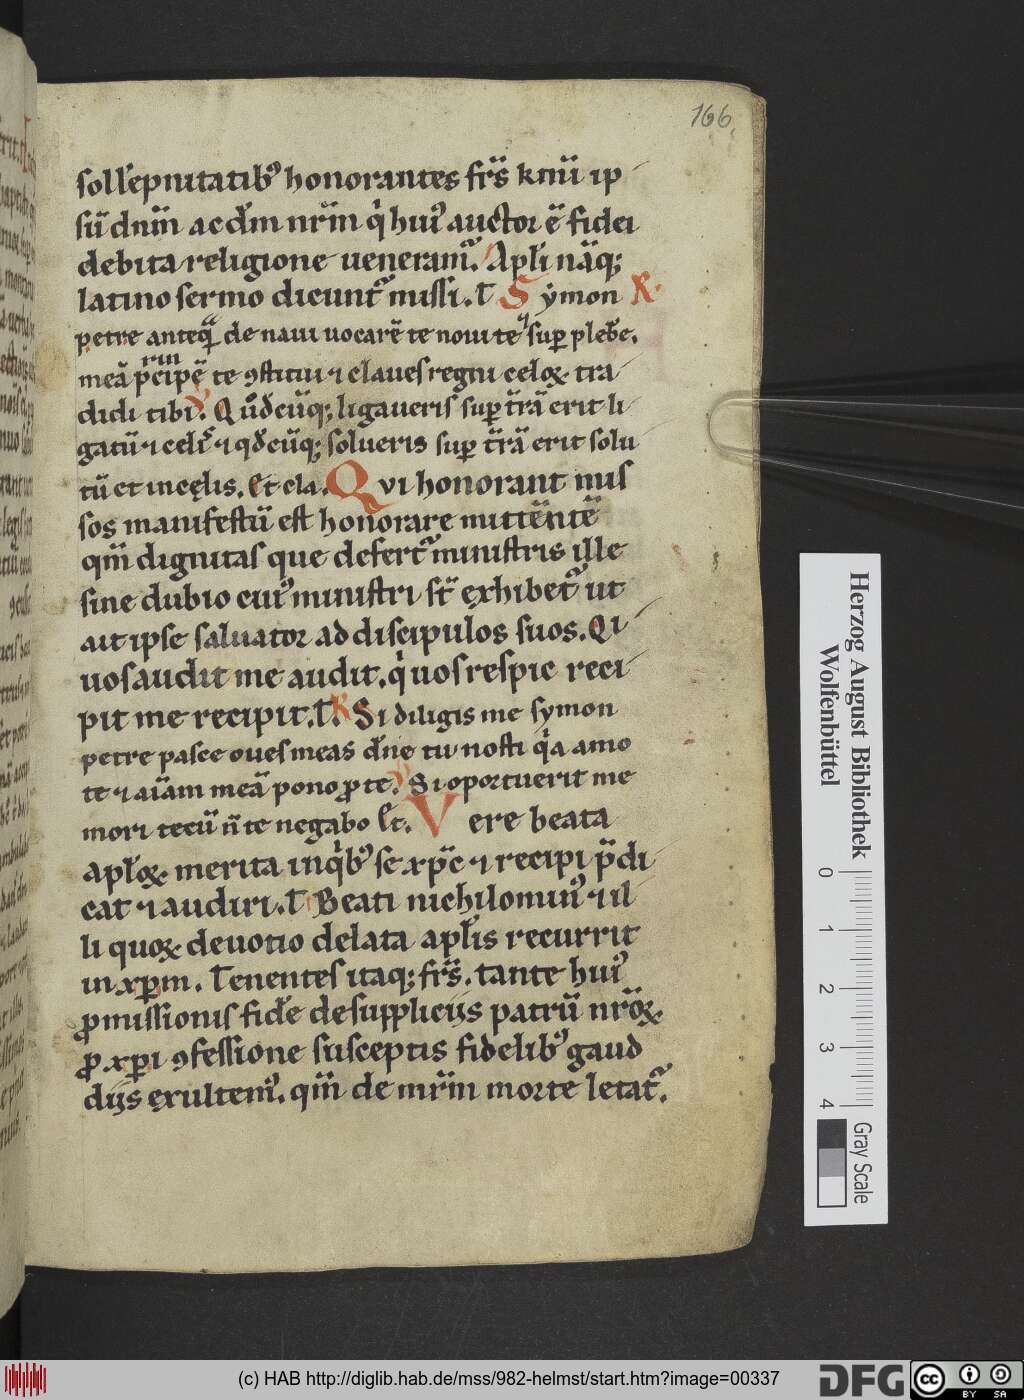 166
solle̅pnitatib᷒ honorantes fr̅s k̅mi̅ ip
su̅ dn̅m ac dm̅ nr̅m q̇ hui᷒ auctor e̅ fidei
debita religione ueneram᷒. Apl̅i na̅q;
latino sermo dicunt᷑ missi. T Symon R.
petre anteqͣ de naui uocare̅ te noui te ⁊ sup̲ plebe̅.
mea̅ pͥncipe̅ te ꝯstitui ⁊ claues regni celoꝝ tra
didi tibi. V Quodcu̅q; ligaueris sup̲ t̅ra̅ erit li
gatu̅ ⁊ i celis ⁊ qd̅cu̅q; solueris sup̲ t̅ra̅ erit solu
tu̅ et in cęlis. Et cla. Qvi honorant mis
sos manifestu̅ est honorare mittente̅
qm̅ dignitas que defert᷑ ministris ille
sine dubio cui᷒ ministri st̅ ęxhibet᷑ ut
ait ipse saluator ad discipulos suos. Qi
uos audit me audit. q̇ uos respic reci
pit me recipit. T. R Si diligis me symon
petre pasce oues meas dn̅e tu nosti qͥa amo
te ⁊ ai̅am mea̅ pono ꝓ te. V Si oportuerit me
mori tecu̅ n̅ te negabo Et. Vere beata
apl̅oꝝ merita in qͥb᷒ se xp̅c ⁊ recipi p̅di
cat ⁊ audiri. T Beati nichilomin᷒ ⁊ il
li quoꝝ deuotio delata apl̅is recurrit
in xp̅m. Tenentes itaq; fr̅s. tante hui᷒
ꝓmissionis fide̅ de suppliciis patru̅ nr̅oꝝ
ꝓ xp̅i ꝯfessione susceptis fidelib᷒ gaud
diis ęxultem᷒. qm̅ de mr̅m morte letat᷑.
Herzog August Bibliothek
Wolfenbüttel
0 1 2 3 4
Gray Scale
(c) HAB http://diglib.hab.de/mss/982-helmst/start.htm?image=00337
DFG
cc BY SA